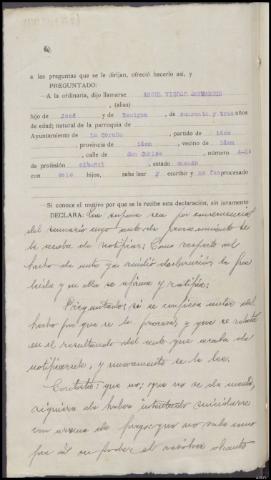 a las preguntas que se le dirijan, ofreció hacerlo así, y
PREGUNTADO:
—A la ordinaria, dijo llamarse ANGEL VIEDAO
(alias)
hijo de José y de Benigna, de cuarenta y tres años
de edad; natural de la parroquia de
Ayuntamiento de La Coruña, partido de idem
, provincia de idem, vecino de idem
, calle de San Carlos, número
de profesión albañil, estado casado
con seis hijos, sabe leer y escribir y no fue procesado
Si conoce el motivo por que se le recibe esta declaración, sin juramento
DECLARA: Que supone sea por consecuencia
del sumario cuyo auto de procesamiento se
le acaba de notificar; Que respecto al
hecho de autos ya emitió declaración, le fué
leída y en ella se afirma y ratifica;
Preguntado: si se confiesa autor del
hecho por que se le procesa, y que se relata
en el resultando del auto que acaba de
notificársele, y nuevamente se le lee.
Contesta: que no; que no se da cuenta
siquiera de haber intentado suicidarse
con arma de fuego; que no sabe como